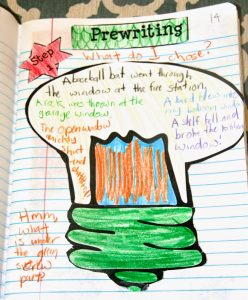 14
Prewriting
Step 1
What do I chose?
A baseball bat went through
the window at the fire station.
A rock was thrown at the
garage window.
The open window
quickly
shut
and shattered
A bird flew into
my bedroom window
A shelf fell and
broke the kitchen
window!
Hmm,
what
is under
the green
screw
part?